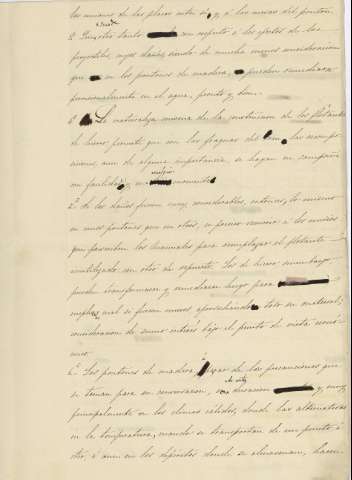 los uniones de las placas entre sí, y á las mismas del ponton.
2. Por otro lado con respecto á los efectos de los
proyectiles, cuyos daños, siendo de mucha menos consideracion
que en los pontones de madera, pueden remediarse
provisionalmente en el agua, pronto y bien.
La naturaleza misma de la construccion de los flotantes
de hierro permite que con las fraguas del las recompo-
siciones, aun de alguna importancia, se hagan en campaña
con facilidad, y
2.º Si los daños fueran muy considerables, entonces, lo mismo
en unos pontones que en otros, es preciso recurrir á los medios
que prescriben los manuales para reemplazar el flotante
inutilizado con otro de repuesto. Los de hierro sin embargo
puede transformarse y remediarse luego para
cual si fueran nuevos aprovechando todo su material,
consideracion de sumo interés bajo el punto de vista econó-
mico.
6.º Los pontones de madera, á pesar de las precauciones que
se toman para su conservacion, duracion y, muy
principalmente en los climas cálidos, donde las alternativas
en la temperatura, cuando se transportan de un punto á
otro, ó aun en los depósitos donde se almacenan, hacen